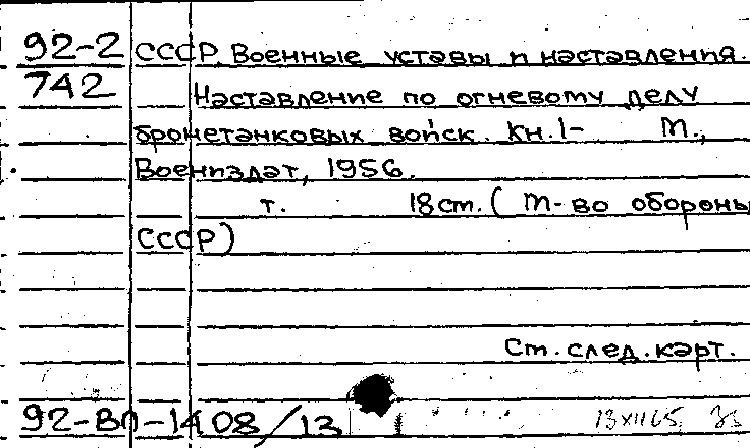 92-2 СССР. Военные уставы и наставления.
742 Наставление по огневому делу
бронетанковых войск. Кн. 1- М.,
Воениздат, 1956.
т. 18 см. (М-во обороны
СССР)
См. след. карт.
92-ВП-1408/13 13 XII 65